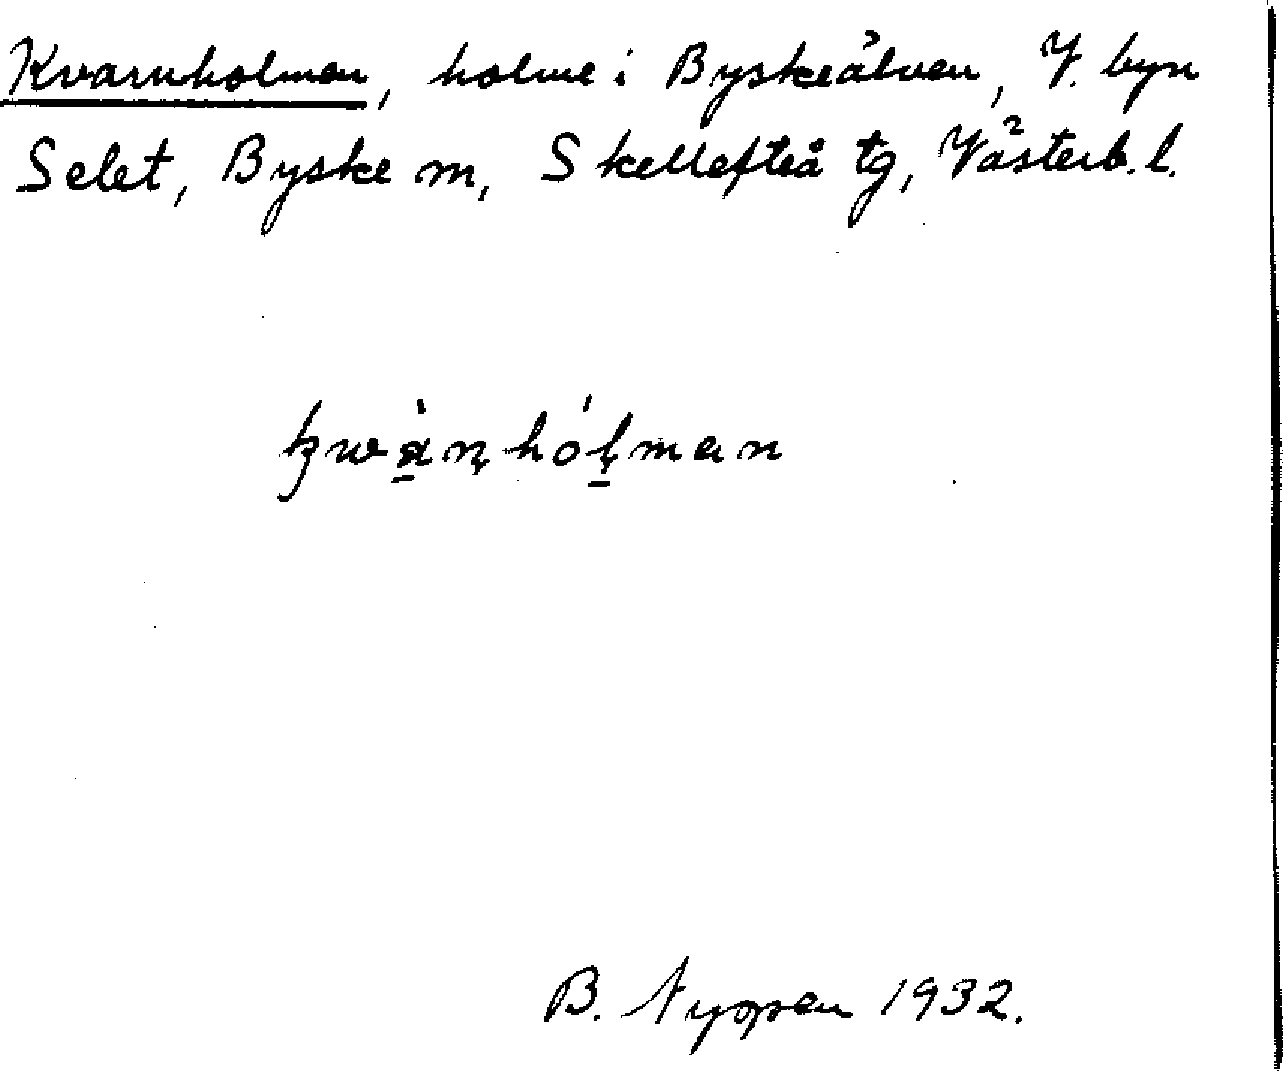 Kvarnholmen, holme i Byskeälven, V. byn
Selet, Byske sn, Skellefteå tg, Västerb. l.
kwàṇhóḷman
B. Nyman 1932.